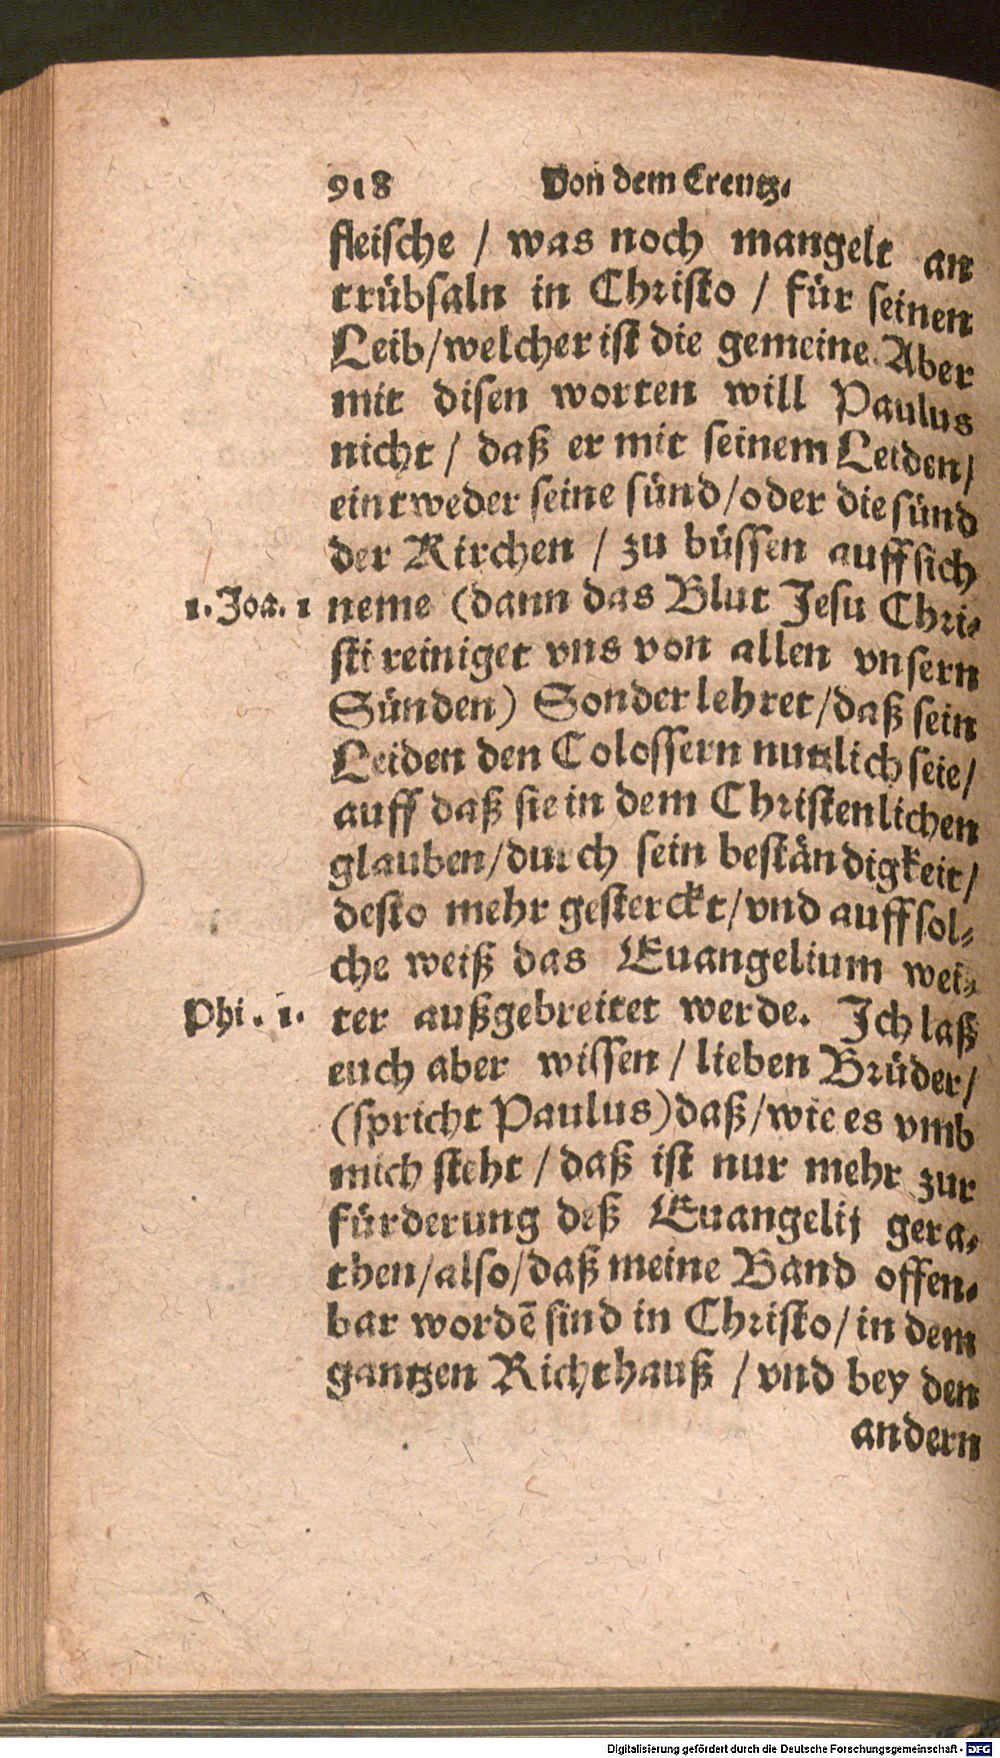 918 Von dem Creutz.
fleische / was noch mangelt an
trübsaln in Christo / für seinen
Leib/welcher ist die gemeine. Aber
mit disen worten will Paulus
nicht / daß er mit seinem Leiden/
eintweder seine sünd/oder die sünd
der Kirchen / zu büssen auff sich
1. Joa. 1 neme (dann das Blut Jesu Chri-
sti reiniget vns von allen vnsern
Sünden) Sonder lehret/daß sein
Leiden den Colossern nutzlich seie/
auff daß sie in dem Christenlichen
glauben/durch sein beständigkeit/
desto mehr gesterckt/vnd auff sol-
che weiß das Euangelium wei-
Phi. 1. ter außgebreitet werde. Ich laß
euch aber wissen / lieben Brüder/
(spricht Paulus) daß/wie es vmb
mich steht / daß ist nur mehr zur
fürderung deß Euangelij gera-
then/also/daß meine Band offen-
bar wordē sind in Christo/in dem
gantzen Richthauß / vnd bey den
andern
Digitalisierung gefördert durch die Deutsche Forschungsgemeinschaft - DFG